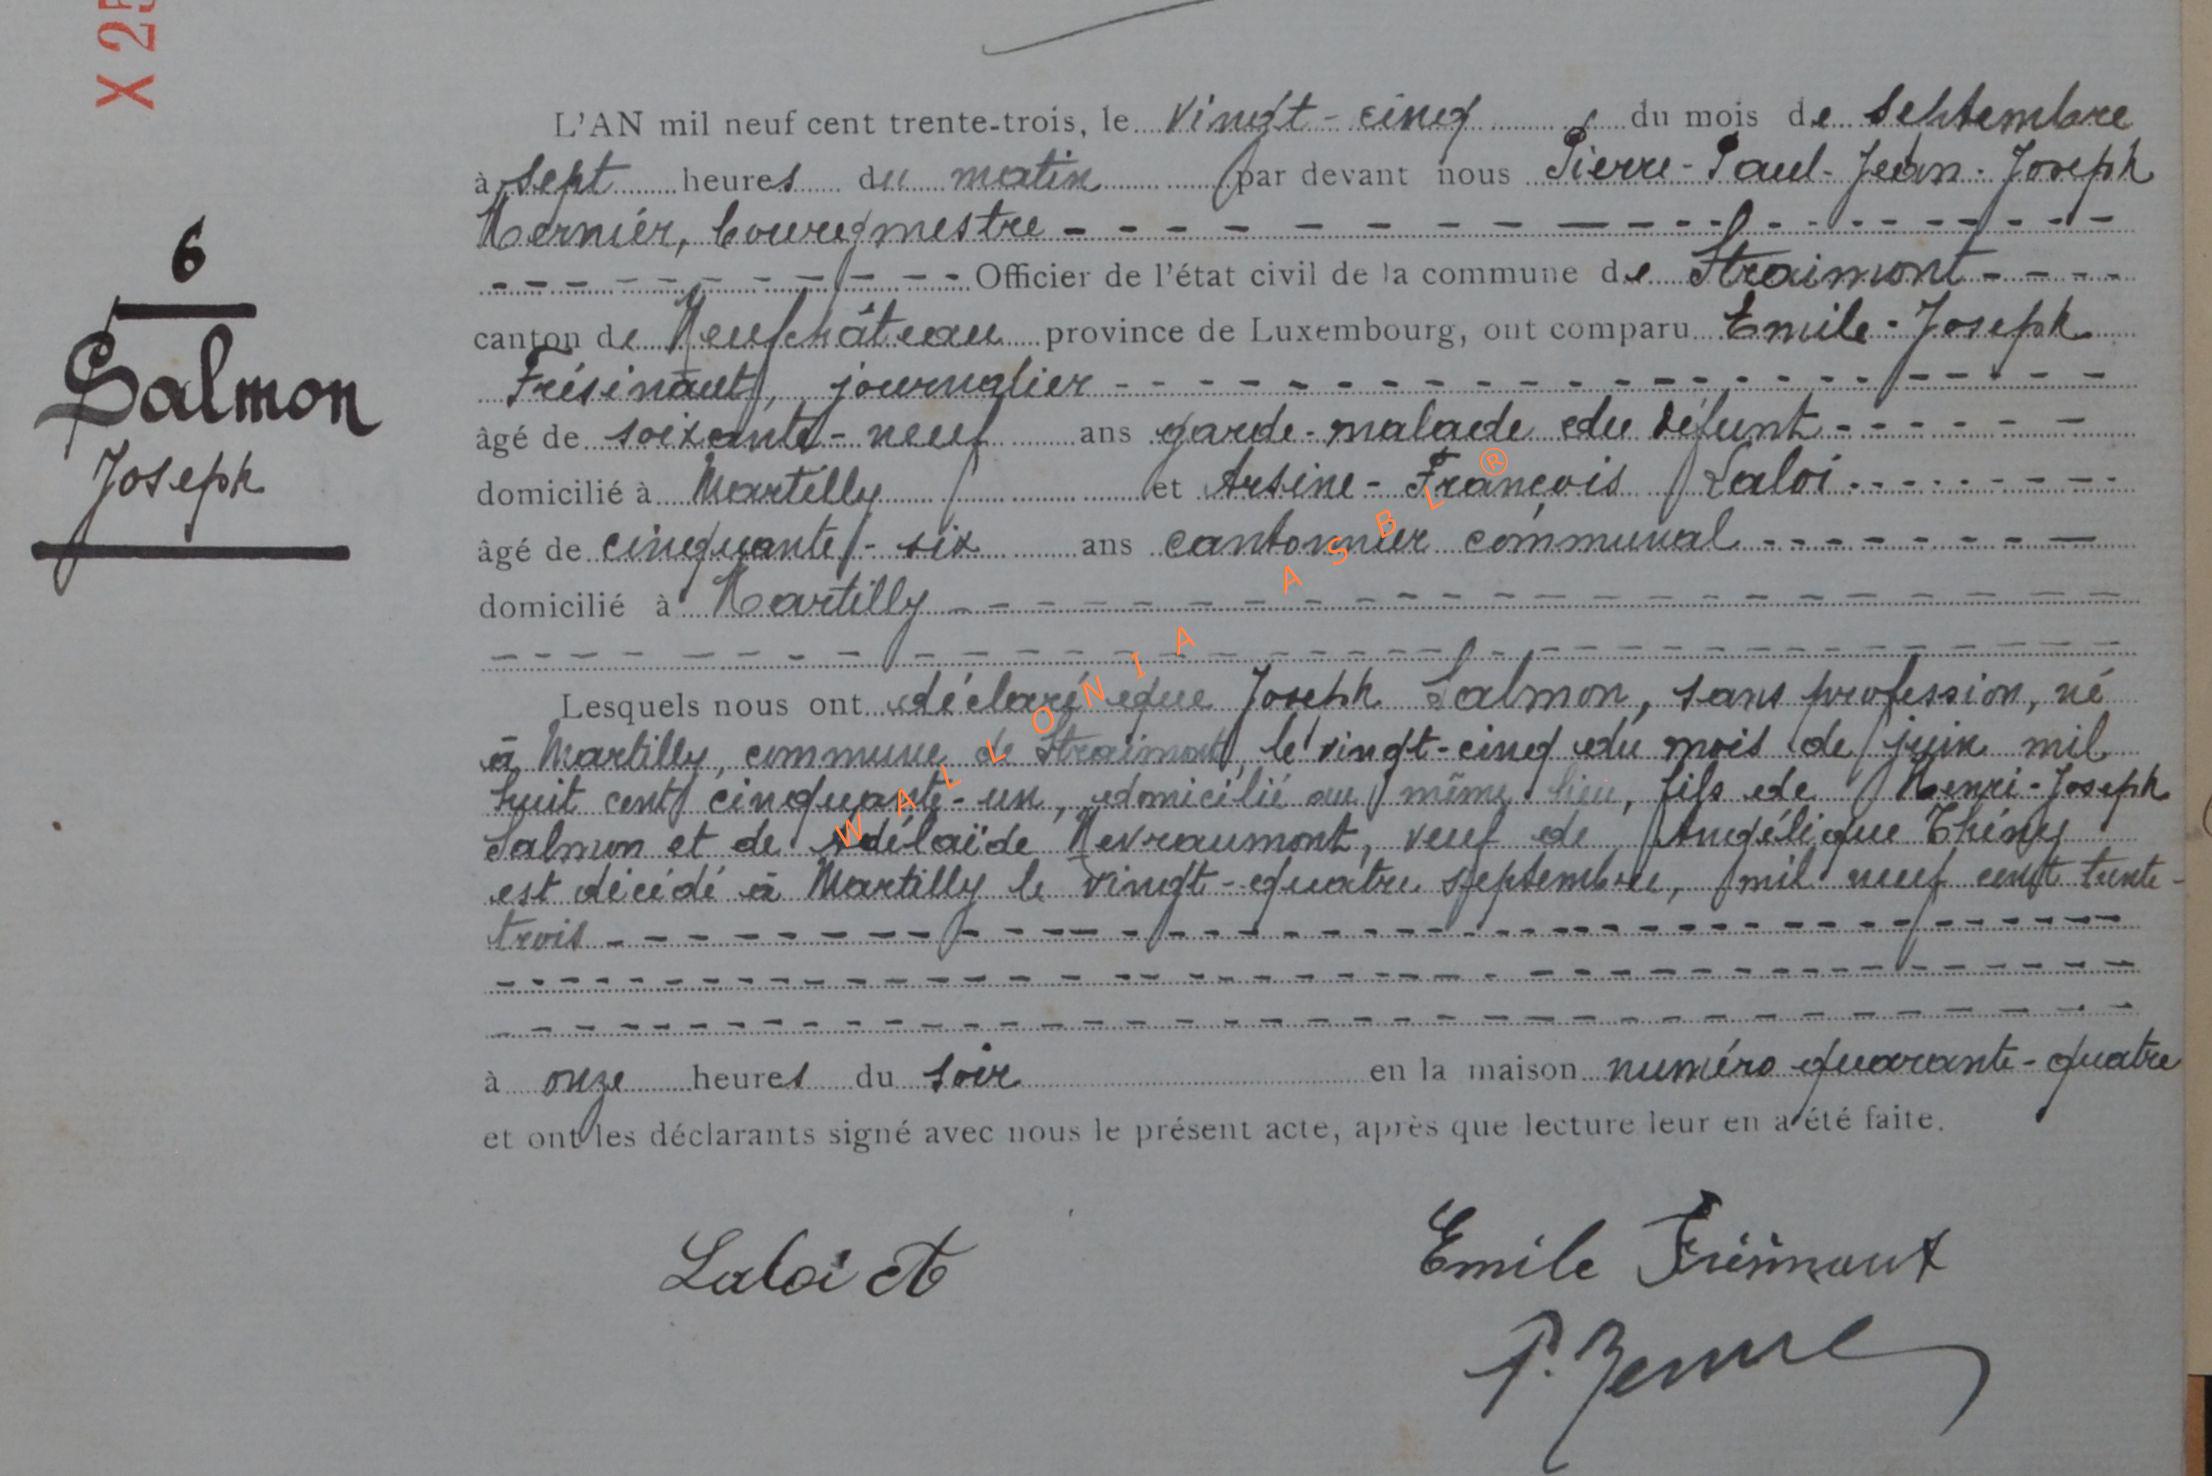 X 25
6
Salmon
Joseph
L'AN mil neuf cent trente-trois, le vingt-cinq du mois de septembre
à sept heures du matin par devant nous Pierre-Paul-Jean-Joseph
Mernier, bourgmestre
Officier de l'état civil de la commune de Straimont
canton de Neufchâteau province de Luxembourg, ont comparu Emile-Joseph
Frésinaut, journalier
âgé de soixante-neuf ans garde-malade du défunt
domicilié à Martilly et Arsène-François Laloi
âgé de cinquante-six ans cantonnier communal
domicilié à Martilly
Lesquels nous ont déclaré que Joseph Salmon, sans profession, né
à Martilly, commune de Straimont, le vingt-cinq du mois de juin mil
huit cent cinquante-un, domicilié au même lieu, fils de Henri-Joseph
Salmon et de Adélaïde Nevraumont, veuf de Angélique Thiny
est décédé à Martilly le vingt-quatre septembre, mil neuf cent trente-
trois
à onze heures du soir en la maison numéro quarante-quatre
et ont les déclarants signé avec nous le présent acte, après que lecture leur en a été faite.
Laloi A
Emile Frésinaut
WALLONIA ASBL®